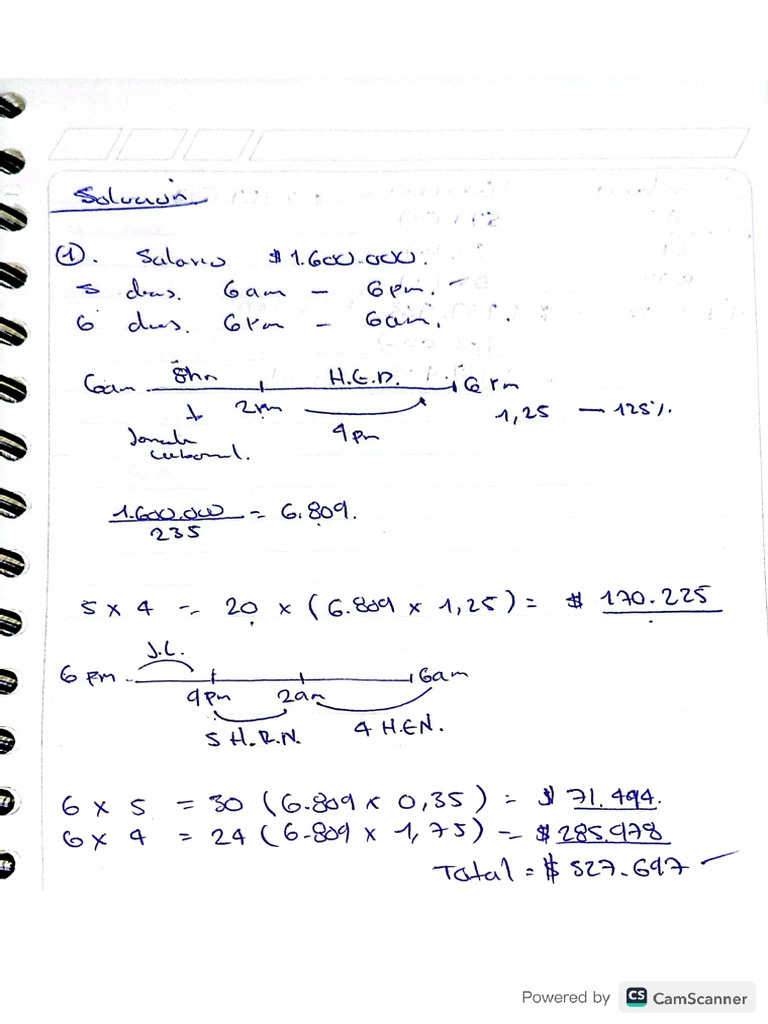 Solución
①. Salario $1.600.000.
5 dias. 6am - 6pm.
6 dias. 6pm - 6am.
8hn H.E.D.
6am 2pm 6pm
4pm 1,25 — 125%.
Jornada
laboral.
1.600.000 = 6.809.
235
5 x 4 = 20 x (6.809 x 1,25) = $ 170.225
J.L.
6 pm 6am
9pm 2am
5 H.R.N. 4 H.E.N.
6 x 5 = 30 (6.809 x 0,35) = $ 71.494.
6 x 4 = 24 (6.809 x 1,75) = $ 285.978
Total = $ 527.697
Powered by CS CamScanner